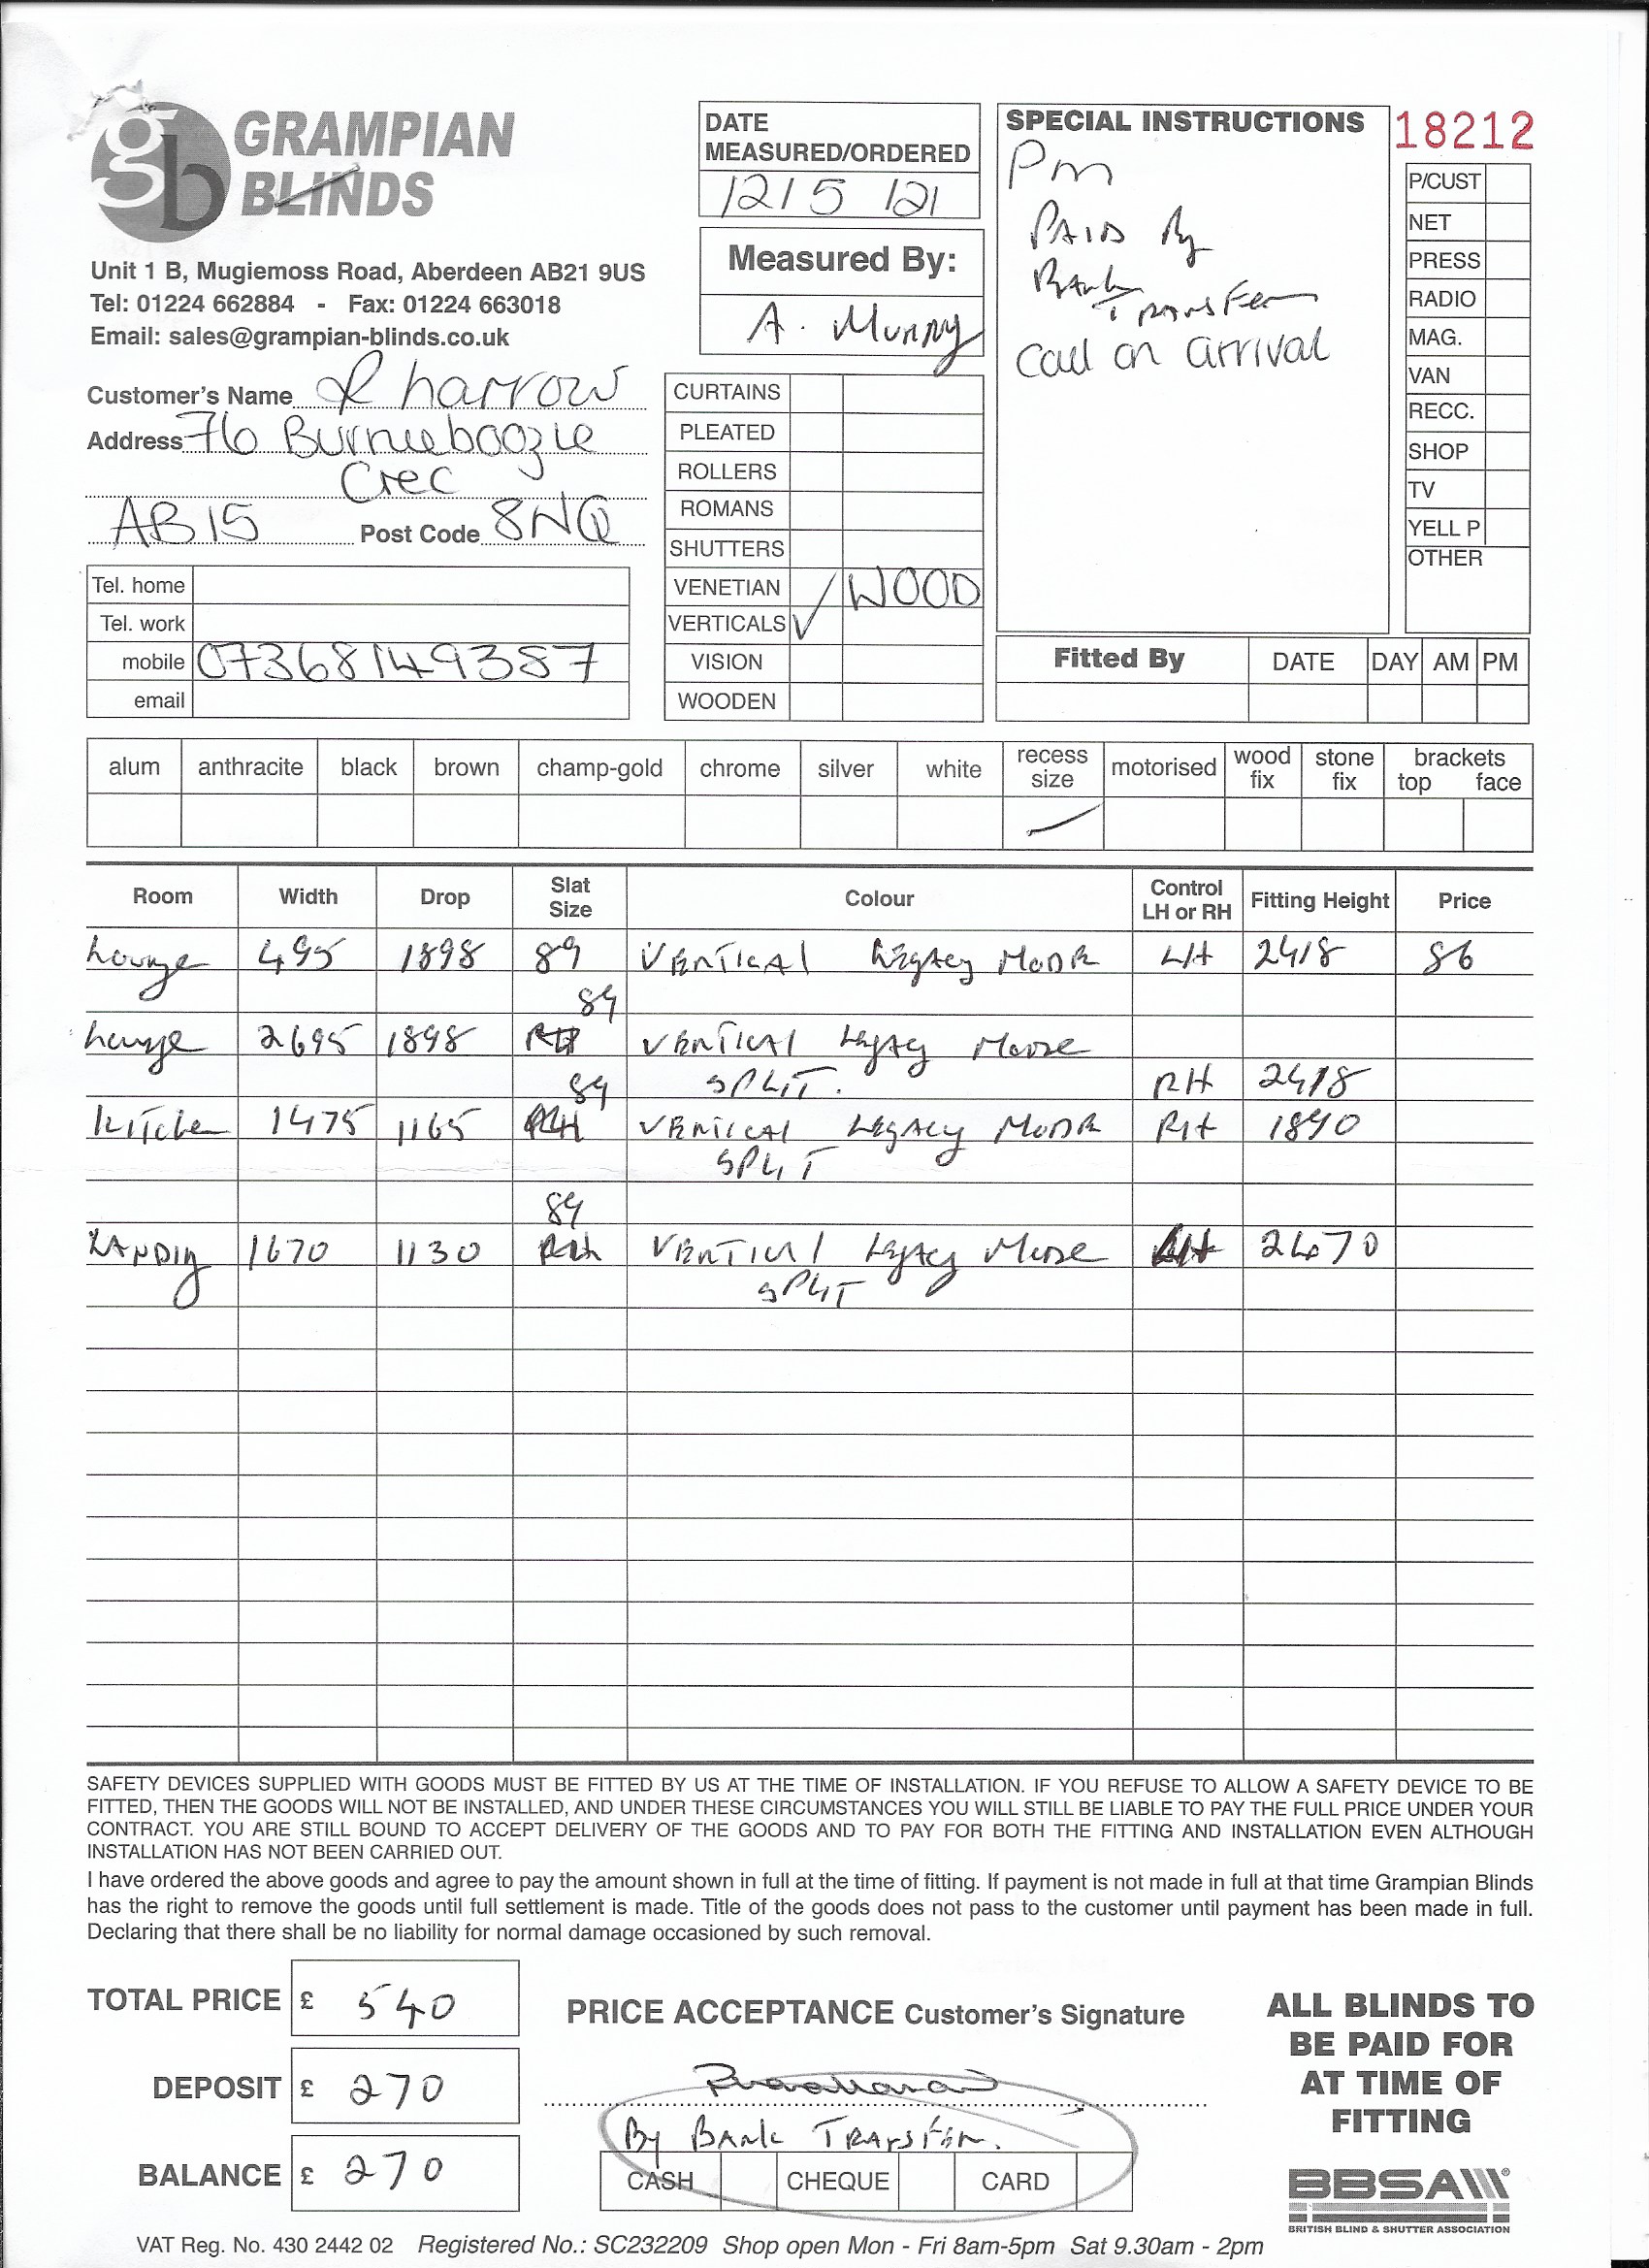 gb GRAMPIAN
BLINDS
Unit 1 B, Mugiemoss Road, Aberdeen AB21 9US
Tel: 01224 662884 - Fax: 01224 663018
Email: sales@grampian-blinds.co.uk
Customer's Name R harrow
Address 76 Burnieboozle
Crec
AB15 Post Code 8NQ
Tel. home
Tel. work
mobile 07368149387
email
DATE
MEASURED/ORDERED
12/5/21
Measured By:
A. Murray
CURTAINS
PLEATED
ROLLERS
ROMANS
SHUTTERS
VENETIAN WOOD
VERTICALS ✓
VISION
WOODEN
SPECIAL INSTRUCTIONS
Pm
PAID By
Bank
TRANSFER
call on arrival
18212
P/CUST
NET
PRESS
RADIO
MAG.
VAN
RECC.
SHOP
TV
YELL P
OTHER
Fitted By DATE DAY AM PM
alum anthracite black brown champ-gold chrome silver white recess size motorised wood fix stone fix brackets top face
Room Width Drop Slat Size Colour Control LH or RH Fitting Height Price
Lounge 495 1898 89 VERTICAL Legacy LH 2418 86
89
Lounge 2695 1898 VERTICAL Legacy
89 SPLIT. RH 2418
Kitchen 1475 1165 VERTICAL LEGACY RH 1890
SPLIT
89
LANDING 1670 1130 VERTICAL Legacy 2470
SPLIT
SAFETY DEVICES SUPPLIED WITH GOODS MUST BE FITTED BY US AT THE TIME OF INSTALLATION. IF YOU REFUSE TO ALLOW A SAFETY DEVICE TO BE
FITTED, THEN THE GOODS WILL NOT BE INSTALLED, AND UNDER THESE CIRCUMSTANCES YOU WILL STILL BE LIABLE TO PAY THE FULL PRICE UNDER YOUR
CONTRACT. YOU ARE STILL BOUND TO ACCEPT DELIVERY OF THE GOODS AND TO PAY FOR BOTH THE FITTING AND INSTALLATION EVEN ALTHOUGH
INSTALLATION HAS NOT BEEN CARRIED OUT.
I have ordered the above goods and agree to pay the amount shown in full at the time of fitting. If payment is not made in full at that time Grampian Blinds
has the right to remove the goods until full settlement is made. Title of the goods does not pass to the customer until payment has been made in full.
Declaring that there shall be no liability for normal damage occasioned by such removal.
TOTAL PRICE £ 540
DEPOSIT £ 270
BALANCE £ 270
PRICE ACCEPTANCE Customer's Signature
By BANK TRANSFER.
CASH CHEQUE CARD
ALL BLINDS TO
BE PAID FOR
AT TIME OF
FITTING
BBSA
BRITISH BLIND & SHUTTER ASSOCIATION
VAT Reg. No. 430 2442 02 Registered No.: SC232209 Shop open Mon - Fri 8am-5pm Sat 9.30am - 2pm